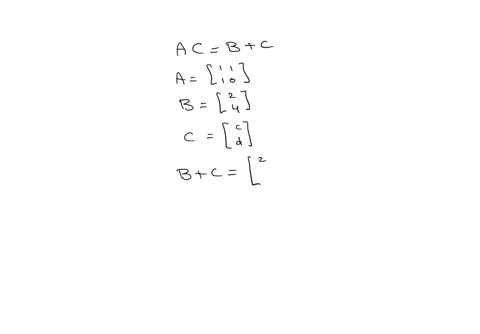 AC = B + C
A = [1 1
1 0]
B = [2
4]
C = [c
d]
B + C = [2